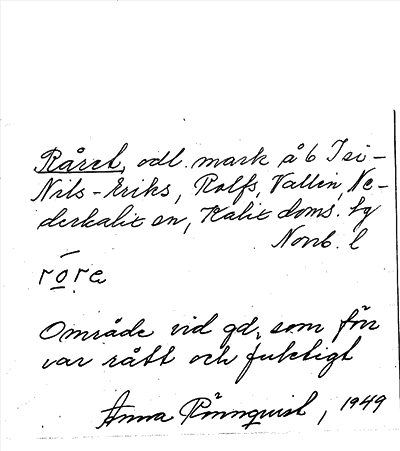 Råret, odl. mark å 6 Isi-
Nils-Eriks, Rolfs, Vallin, Ne-
derkalix sn, Kalix doms. lg
Norrb. l
rōre
Område vid gd, som förr
var rått och fuktigt
Anna Rönnquist, 1949